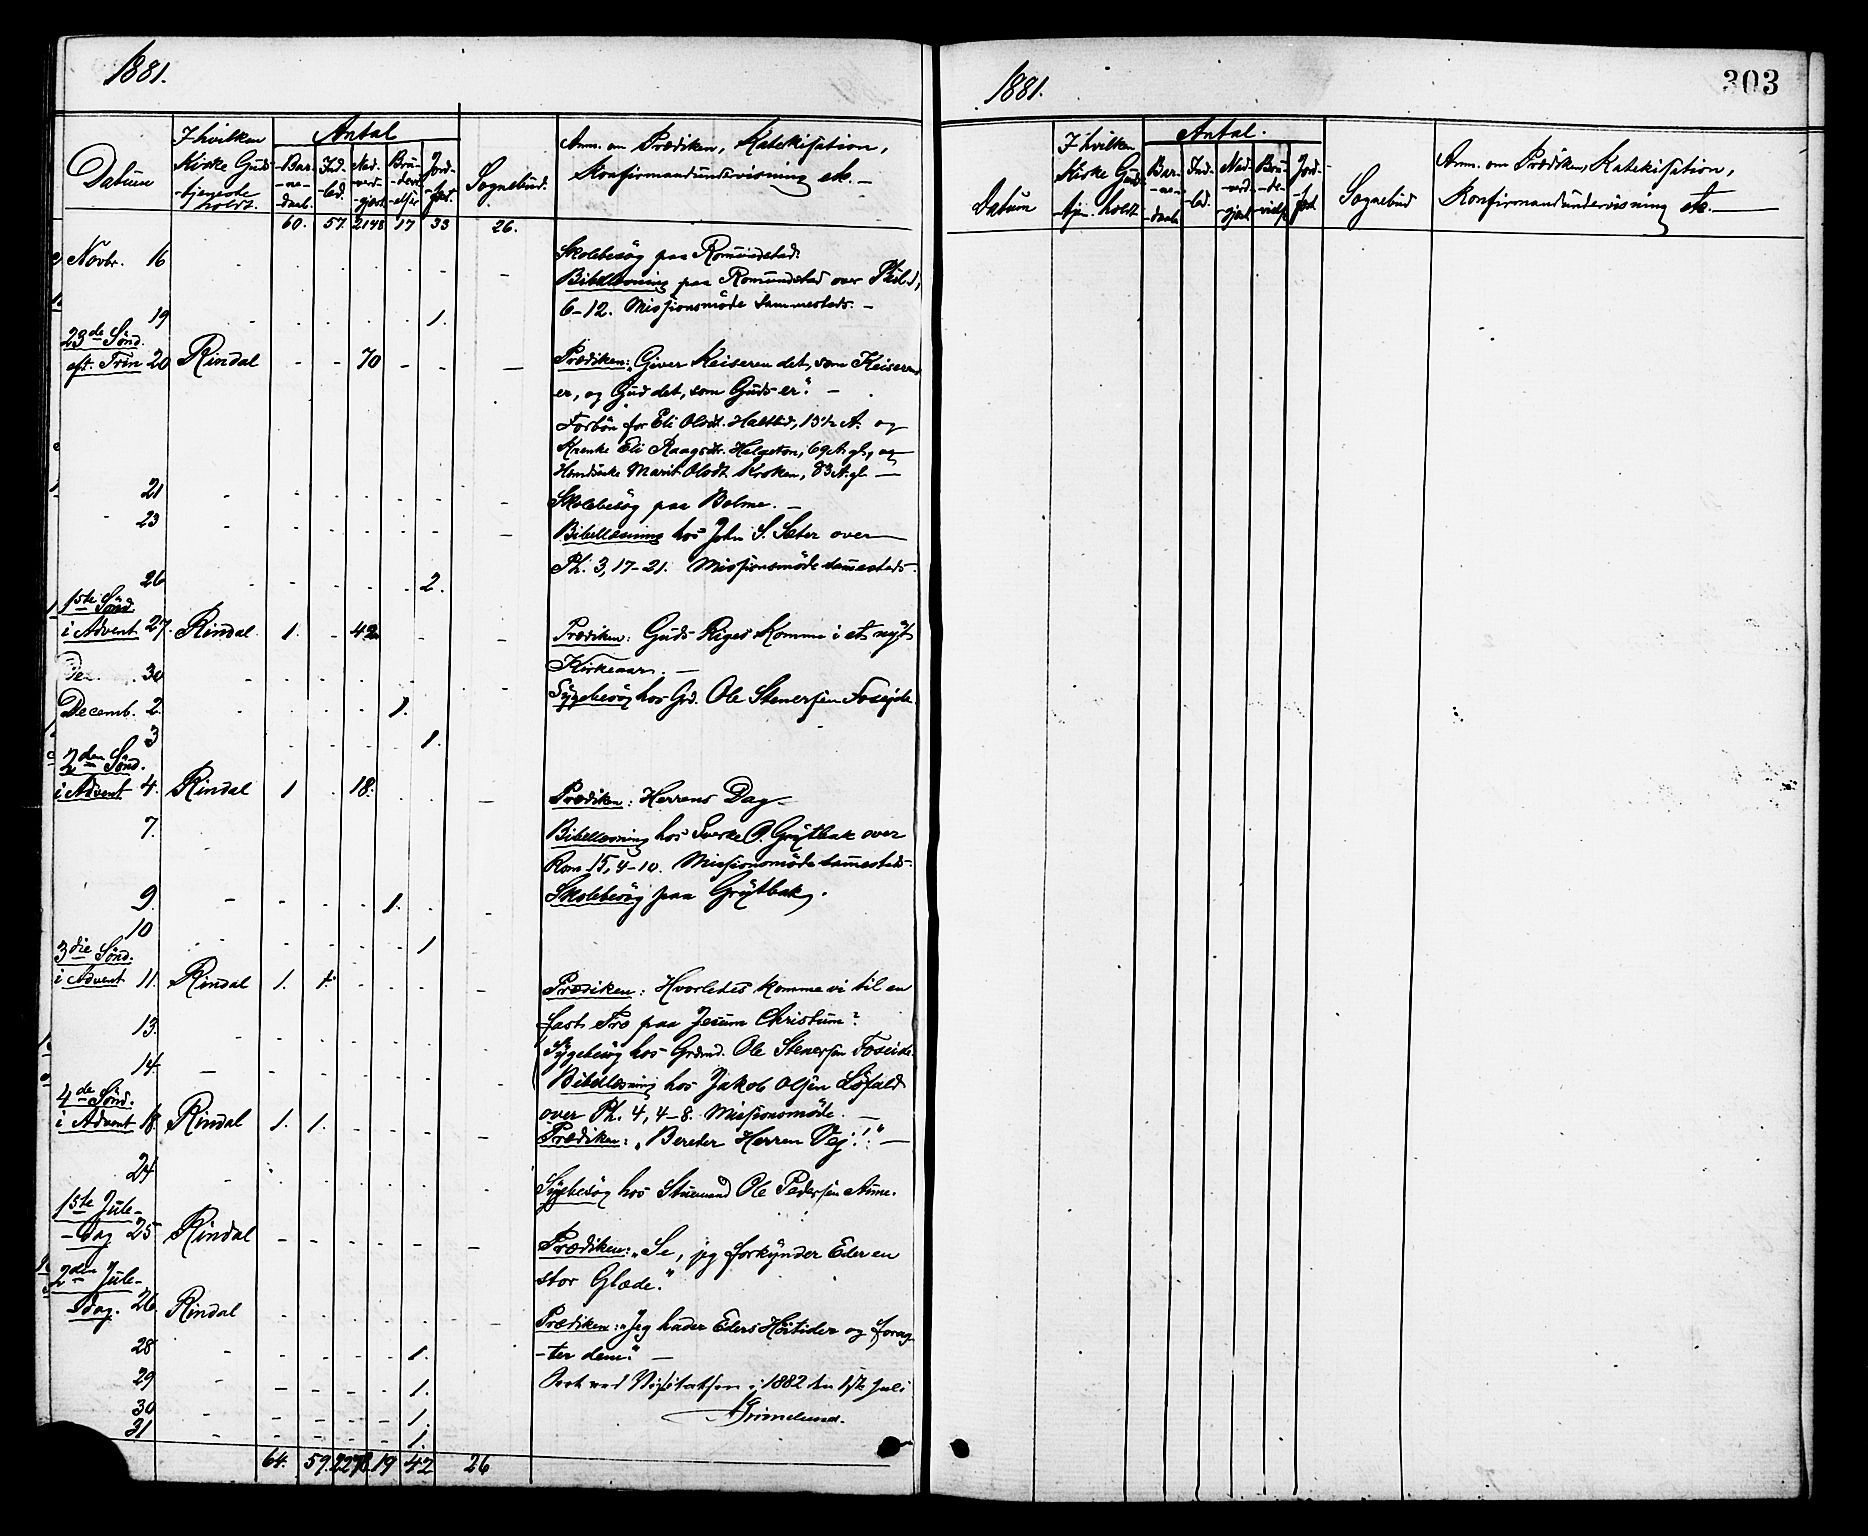 1881.
Datum
I hvilken Kirke Guds-tjeneste holdt.
Antal
Bar-ne-daab.
Ind-led.
Nad-verd-gjest
Bru-devi-elser
Jord-fest.
Sognebud.
Anm. om Prædiken, Katekisation,
Konfirmandundervisning etc. —
60. 57. 2148 17 33 26.
Novbr. 16 Skolebesøg paa Romundstad.
Bibellæsning paa Romundstad over Phil. 1,
6–12. Missionsmöde sammesteds. —
19 1.
23de Sönd.
eft. Trin 20 Rindal 70 Prædiken: „Giver Keiseren det, som Keiserens
er, og Gud det, som Guds er." —
Forbön for Eli Olsdt. Halstad, 13½ A. og
Eli Haagsdt. Helgeton, 69 A. gl., og
Marit Olsdt. Kroken, 83 A. gl. —
21 Skolebesøg paa Bolme. —
23 Bibellæsning hos John S. Sæter over
Ph. 3, 17–21. Missionsmöde sammesteds.
26 2.
1ste Sönd.
i Advent 27. Rindal. 1. 42 Prædiken: Guds Riges Komme i et nyt
Kirkeaar. —
30 Sygebesøg hos Grd. Ole Stenersen Foseide.
Decemb. 2. 1.
3 1.
2den Sönd.
i Advent 4. Rindal 1 18. Prædiken: Herrens Dag.
7. Bibellæsning hos Sverke O. Grytbak over
Rom. 15, 4–10. Missionsmöde sammesteds.
Skolebesøg paa Grytbak.
9. 1.
10 1
3die Sönd.
i Advent 11. Rindal 1. 1. Prædiken: Hvorledes komme vi til en
fast Tro paa Jesum Christum?
13. Sygebesøg hos Grdmd. Ole Stenersen Foseide.
14 Bibellæsning hos Jakob Olsen Löfald
over Ph. 4, 4–8. Missionsmöde. —
4de Sönd.
i Advent 18. Rindal 1. 1. Prædiken: „Bereder Herren Vej!" —
24 Sygebesøg hos Stuemand Ole Pedersen Aune.
1ste Jule-
-dag 25 Rindal Prædiken: „Se, jeg forkynder Eder en
stor Glæde."
2den Jule-
dag. 26 Rindal Prædiken: „Jeg hader Eders Höitider og forag-
-ter dem." —
28 1.
29 1.
30 1.
31 1.
ved Visitatsen i 1882 den Juli
Grimelund.
64. 59. 2278. 19 42 26
1881.
303
Datum
I hvilken Kirke Guds-tjen. holdt
Antal.
Bar-ne-daab
Ind-led.
Nad-verd-gjest
Bru-de-viels.
Jord-fest
Sognebud
Anm. om Prædiken, Katekisation,
Konfirmandundervisning etc. —